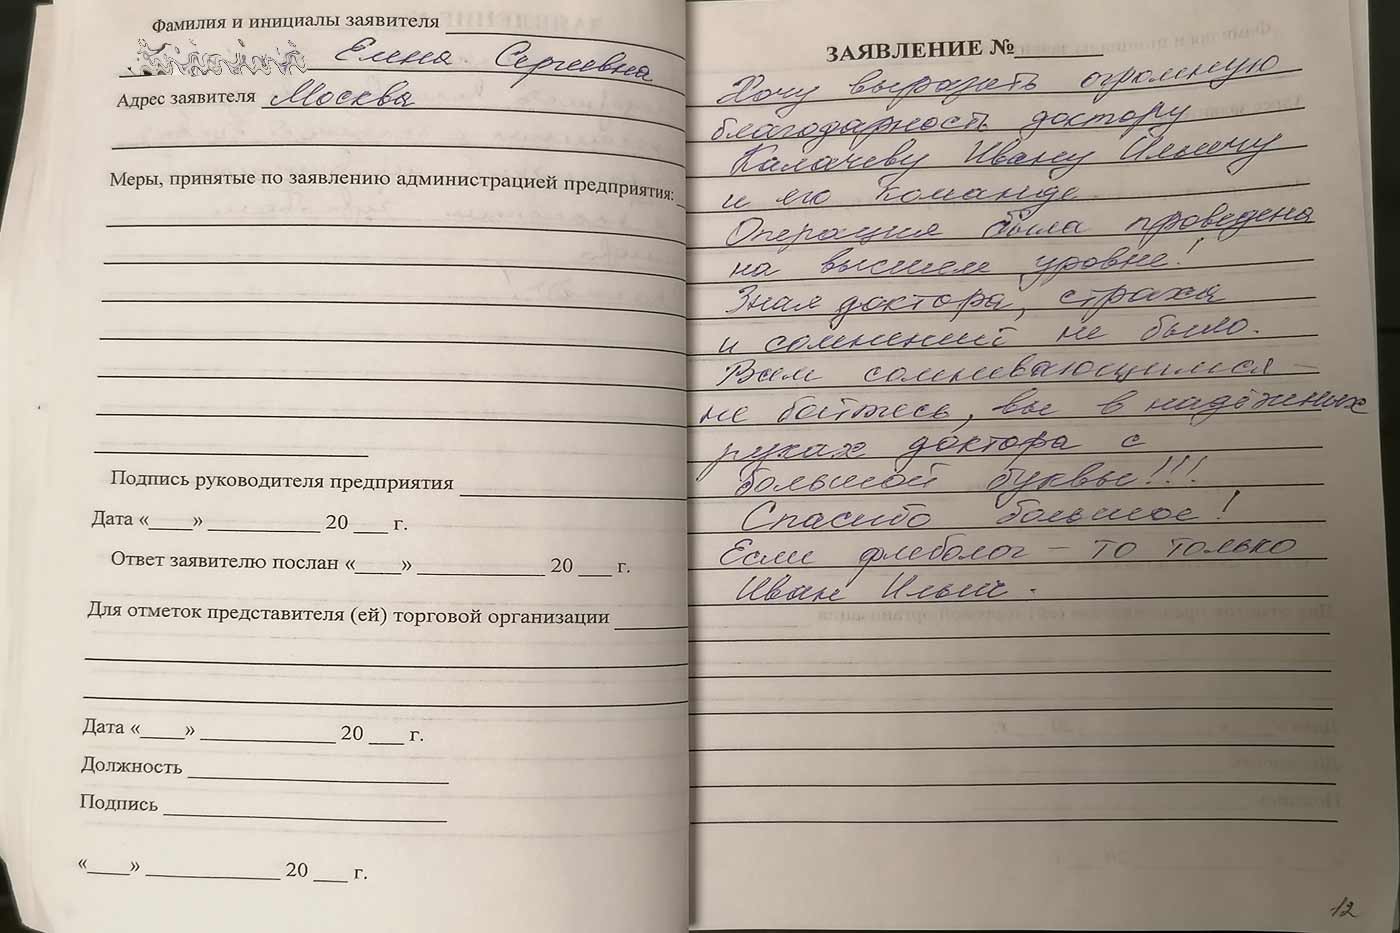 Фамилия и инициалы заявителя
Елена Сергеевна
Адрес заявителя Москва
Меры, принятые по заявлению администрацией предприятия:
Подпись руководителя предприятия
Дата «____» __________ 20 ___ г.
Ответ заявителю послан «____» ___________ 20 ___ г.
Для отметок представителя (ей) торговой организации
Дата «____» ____________ 20 ___ г.
Должность
Подпись
«____» ____________ 20 ___ г.
ЗАЯВЛЕНИЕ №
Хочу выразить огромную
благодарность доктору
Калачеву Ивану Ильичу
и его команде
Операция была проведена
на высшем уровне!
Зная доктора, страха
и сомнений не было.
Вам сомневающимся –
не бойтесь, вы в надёжных
руках доктора с
большой буквы!!!
Спасибо большое!
Если флеболог – то только
Иван Ильич.
12